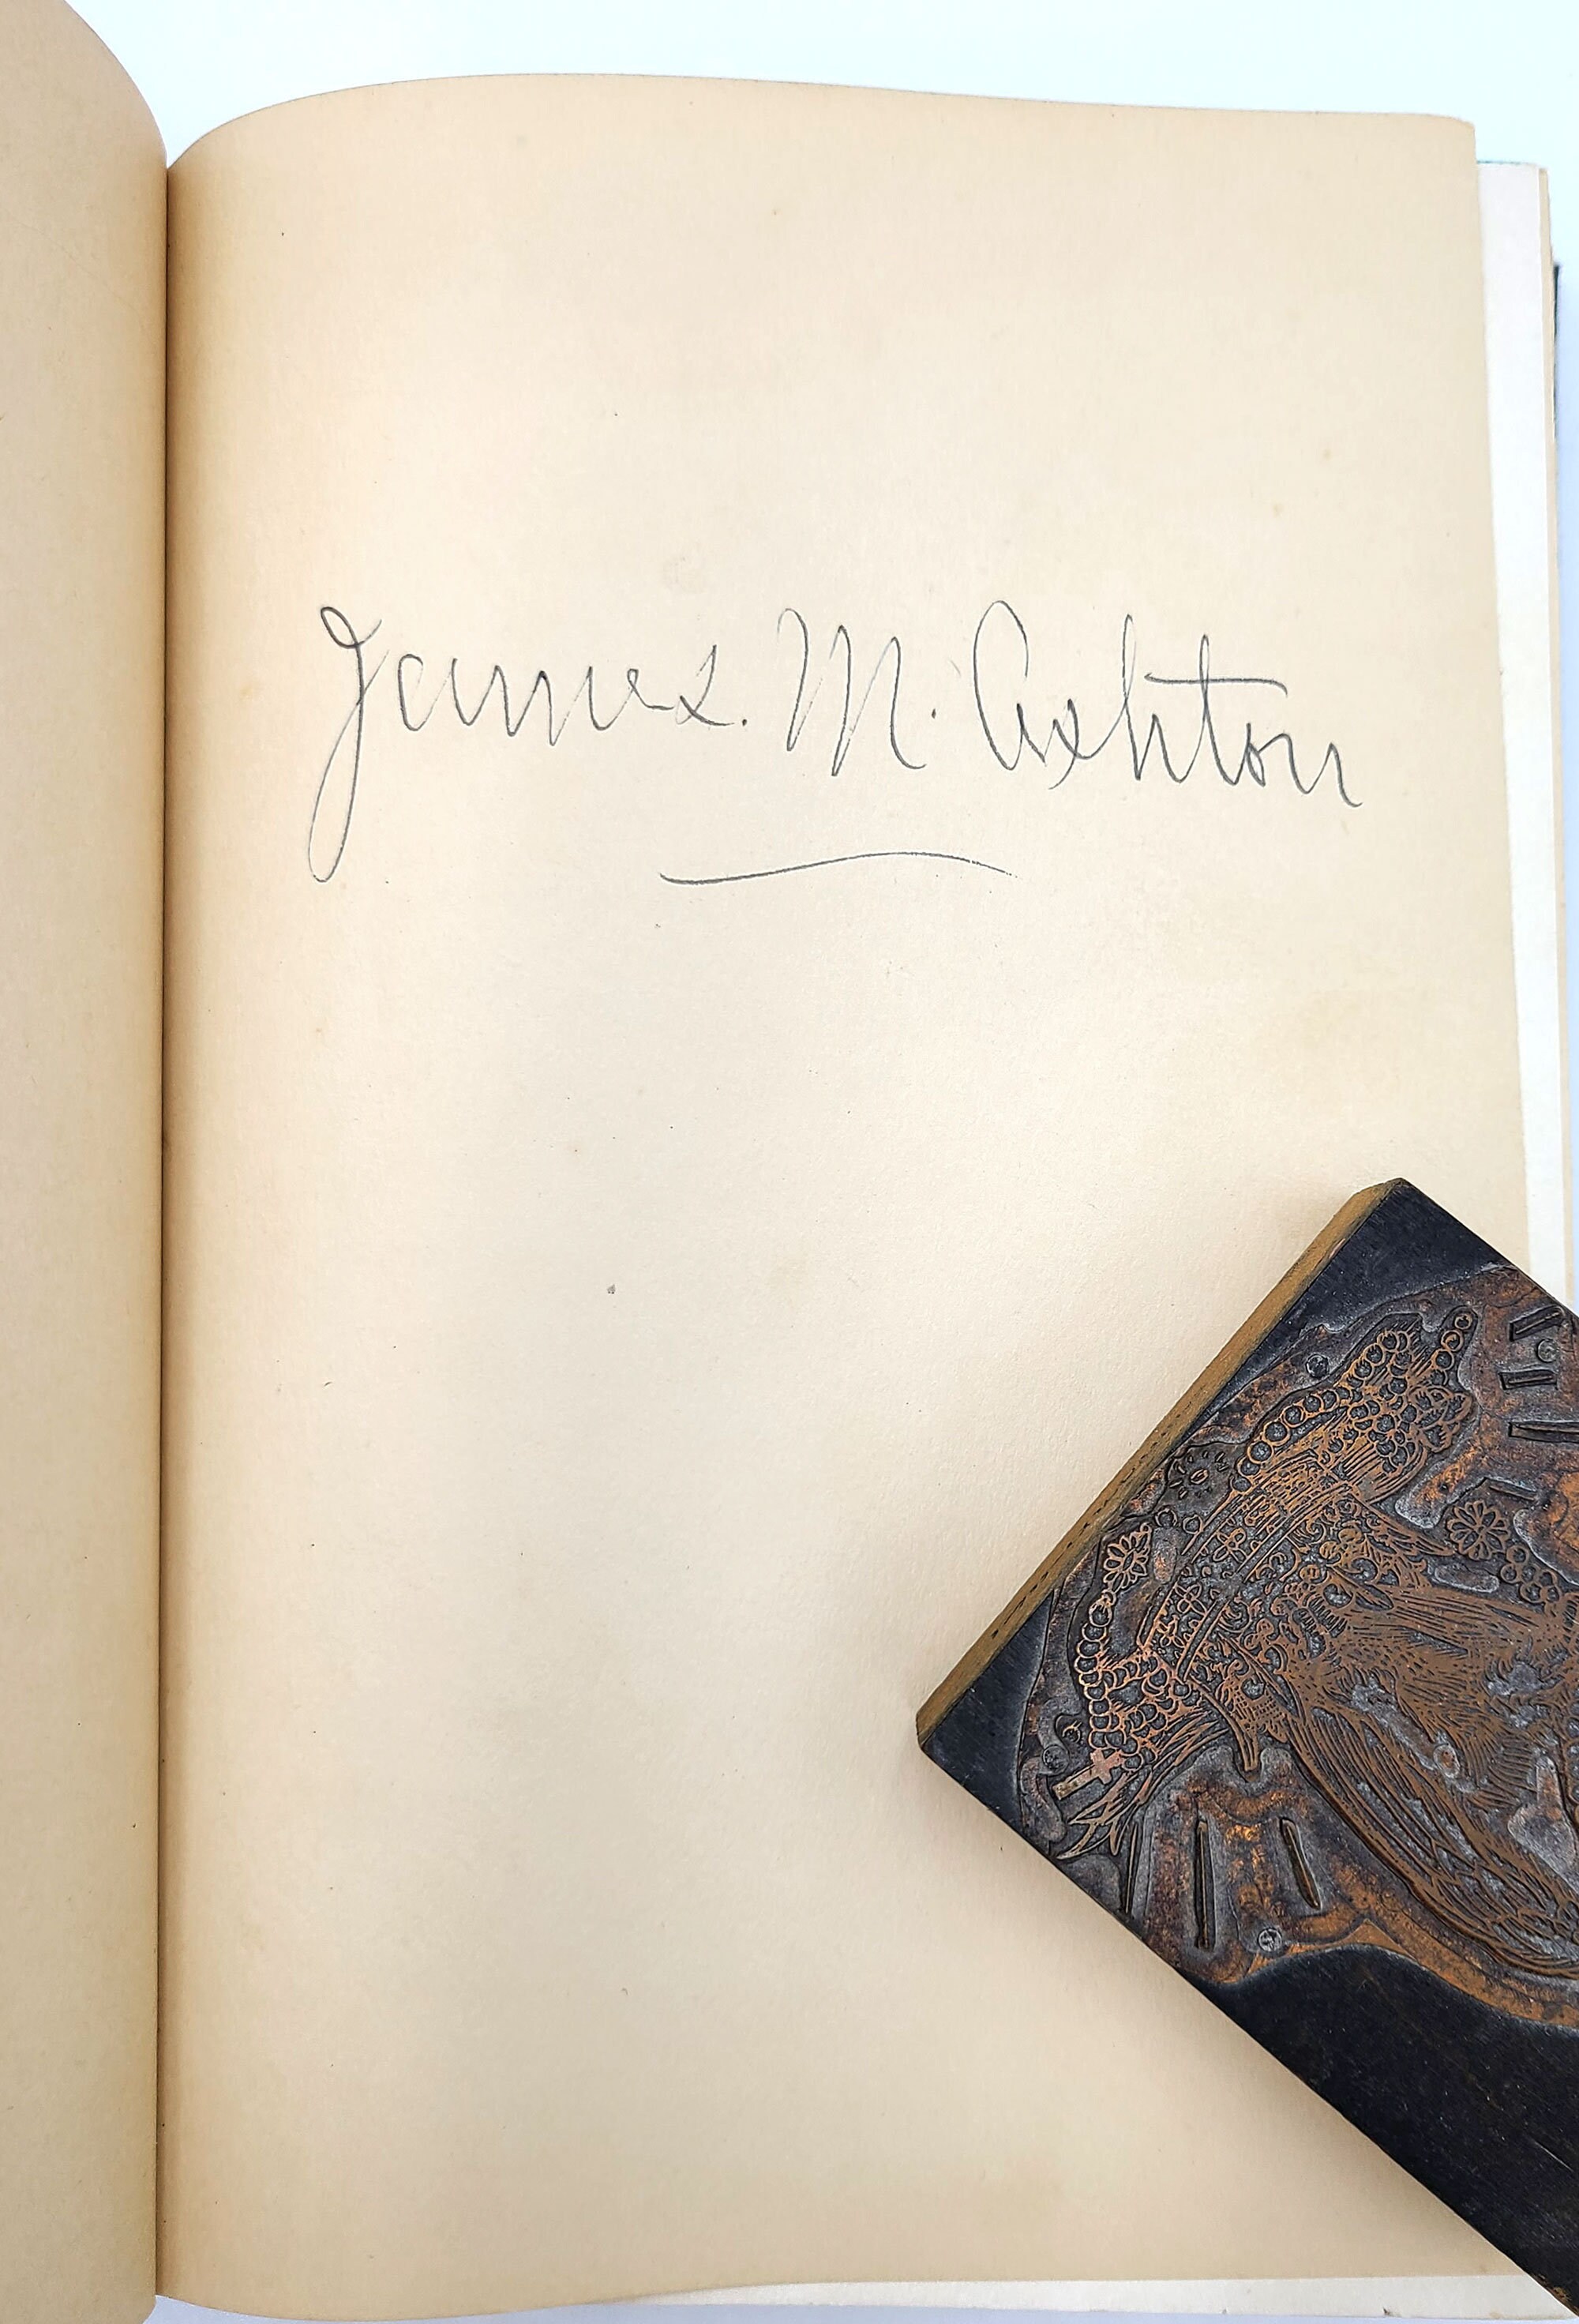 James. M. Ashton